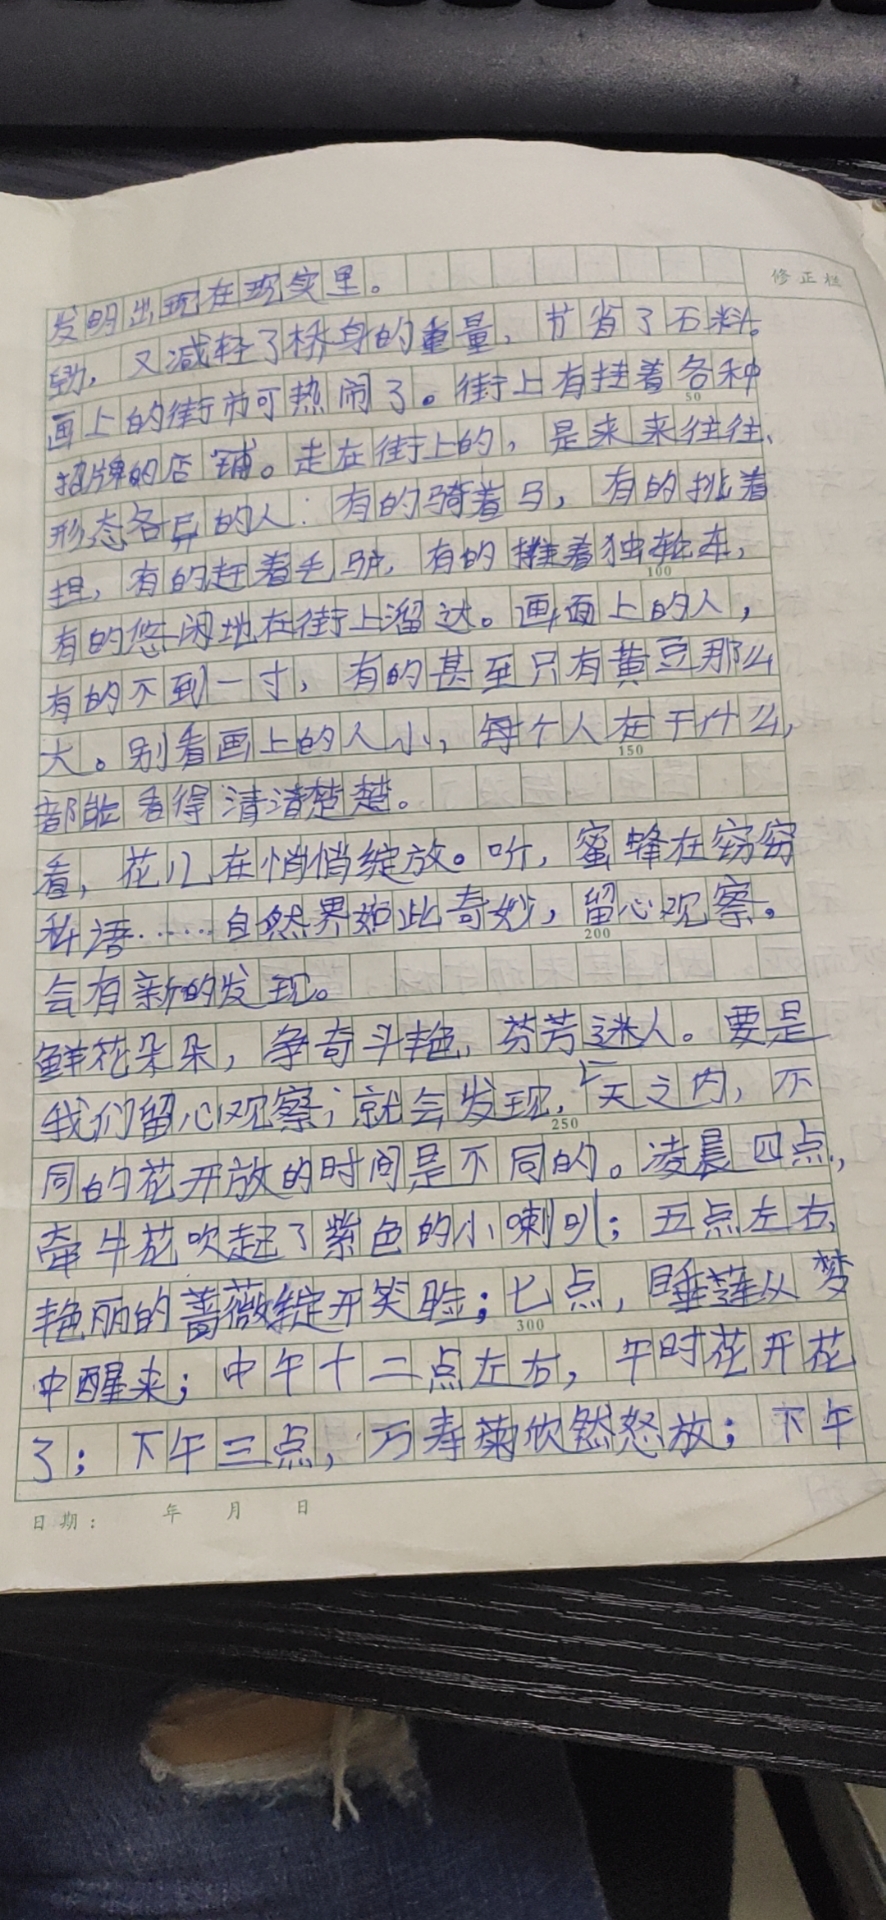 修正栏
发明出现在现实里。
动，又减轻了桥身的重量，节省了石料。
画上的街市可热闹了。街上有挂着各种
50
招牌的店铺。走在街上的，是来来往往、
形态各异的人：有的骑着马，有的挑着
担，有的赶着毛驴，有的推着独轮车，
100
有的悠闲地在街上溜达。画面上的人，
有的不到一寸，有的甚至只有黄豆那么
大。别看画上的人小，每个人在干什么，
150
都能看得清清楚楚。
看，花儿在悄悄绽放。听，蜜蜂在窃窃
私语……自然界如此奇妙，留心观察。
200
会有新的发现。
鲜花朵朵，争奇斗艳，芬芳迷人。要是
我们留心观察，就会发现，一天之内，不
250
同的花开放的时间是不同的。凌晨四点，
牵牛花吹起了紫色的小喇叭；五点左右，
艳丽的蔷薇绽开笑脸；七点，睡莲从梦
300
中醒来；中午十二点左右，午时花开花
了；下午三点，万寿菊欣然怒放；下午
日期： 年 月 日